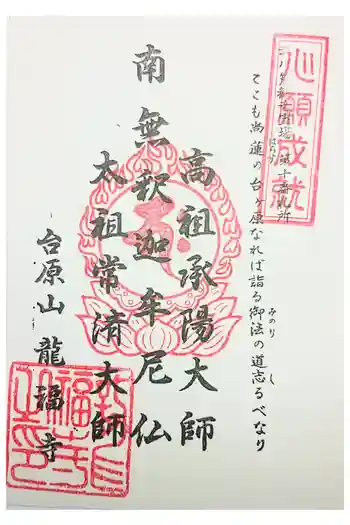 心願成就
第十番札所
ここも尚蓮の台ヶ原なれば詣る御法の道忘るべなり
はちす
みのり
し
高祖承陽大師
南無釈迦牟尼仏
太祖常済大師
台原山 龍福寺